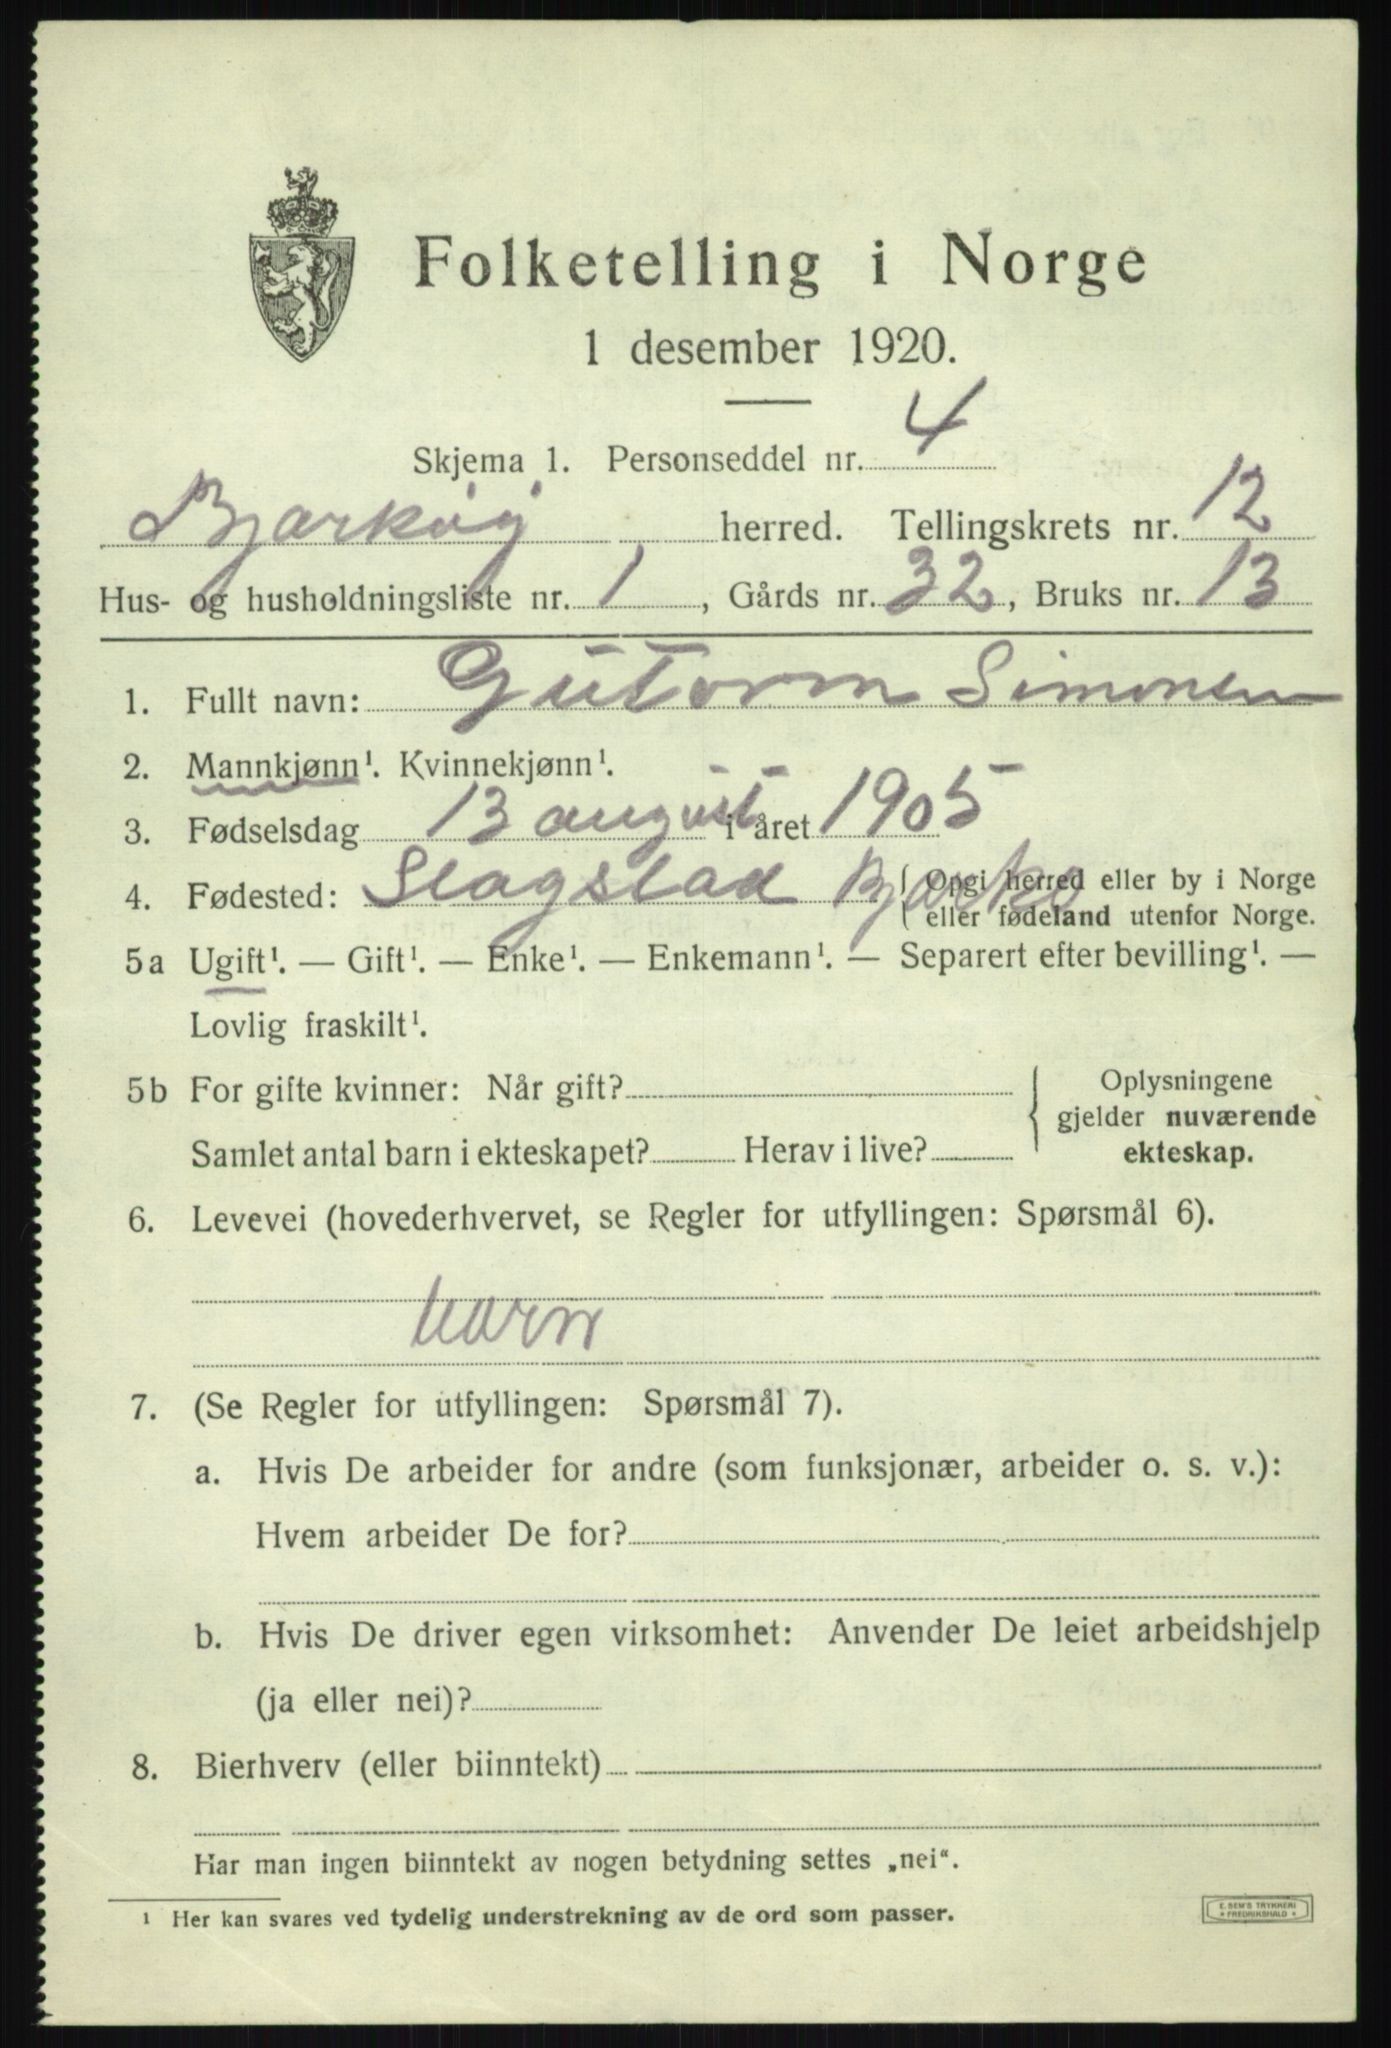 Folketelling i Norge
1 desember 1920.
Skjema 1. Personseddel nr. 4
Bjarkøy herred. Tellingskrets nr. 12
Hus- og husholdningsliste nr. 1, Gårds nr. 32, Bruks nr. 13
1. Fullt navn: Gutorm Simonsen
2. Mannkjønn¹. Kvinnekjønn¹.
3. Fødselsdag 13 august i året 1905
4. Fødested: Slagstad Bjarkø { Opgi herred eller by i Norge
eller fødeland utenfor Norge.
5a Ugift¹. — Gift¹. — Enke¹. — Enkemann¹. — Separert efter bevilling¹. —
Lovlig fraskilt¹.
5b For gifte kvinner: Når gift? { Oplysningene
gjelder nuværende
Samlet antal barn i ekteskapet? Herav i live? ekteskap.
6. Levevei (hovederhvervet, se Regler for utfyllingen: Spørsmål 6).
barn
7. (Se Regler for utfyllingen: Spørsmål 7).
a. Hvis De arbeider for andre (som funksjonær, arbeider o. s. v.):
Hvem arbeider De for?
b. Hvis De driver egen virksomhet: Anvender De leiet arbeidshjelp
(ja eller nei)?
8. Bierhverv (eller biinntekt)
Har man ingen biinntekt av nogen betydning settes „nei“.
1 Her kan svares ved tydelig understrekning av de ord som passer.
E. SEM'S TRYKKERI
* FREDRIKSHALD *